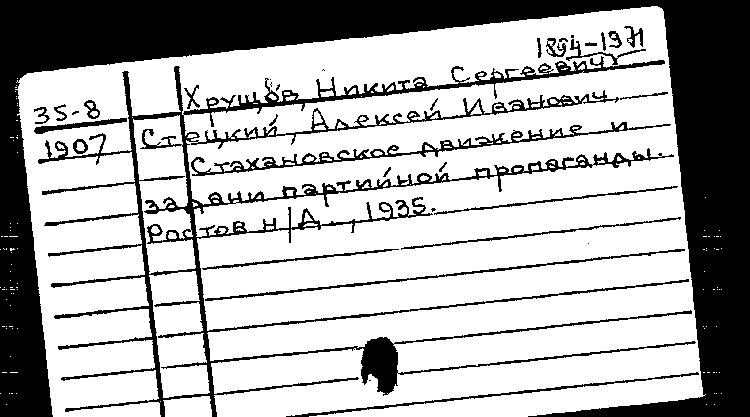 1894-1971
35-8 Хрущов, Никита Сергеевич
1907 Стецкий, Алексей Иванович.
Стахановское движение и
задачи партийной пропаганды.
Ростов н/Д., 1935.